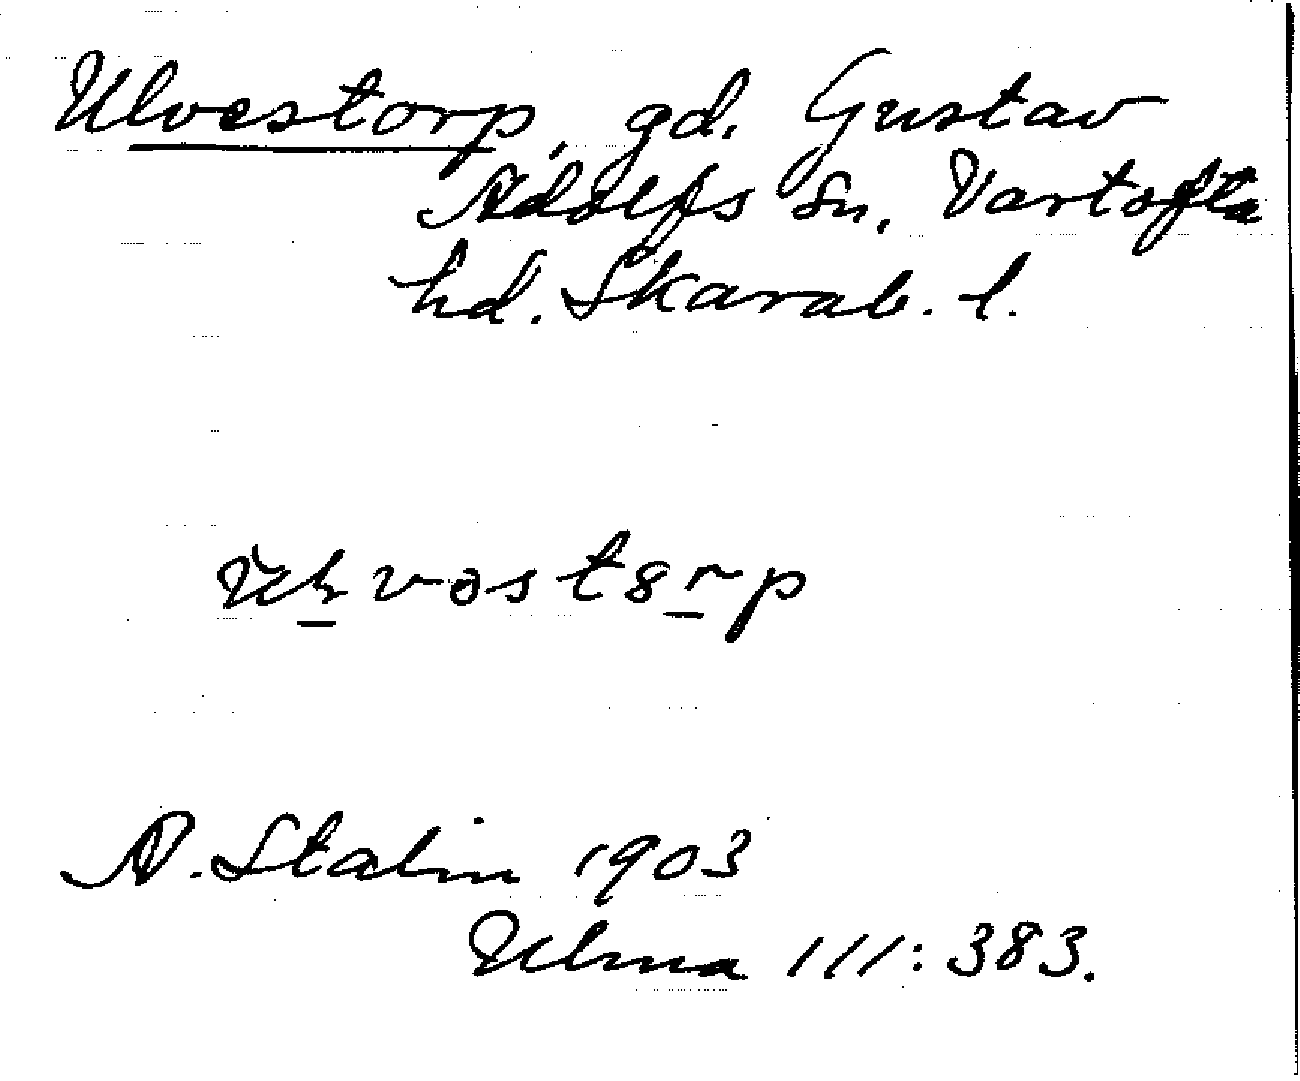 Ulvestorp, gd. Gustav
Adolfs sn, Vartofta
hd. Skarab. l.
A. Stalin 1903
Ulma 111: 383.